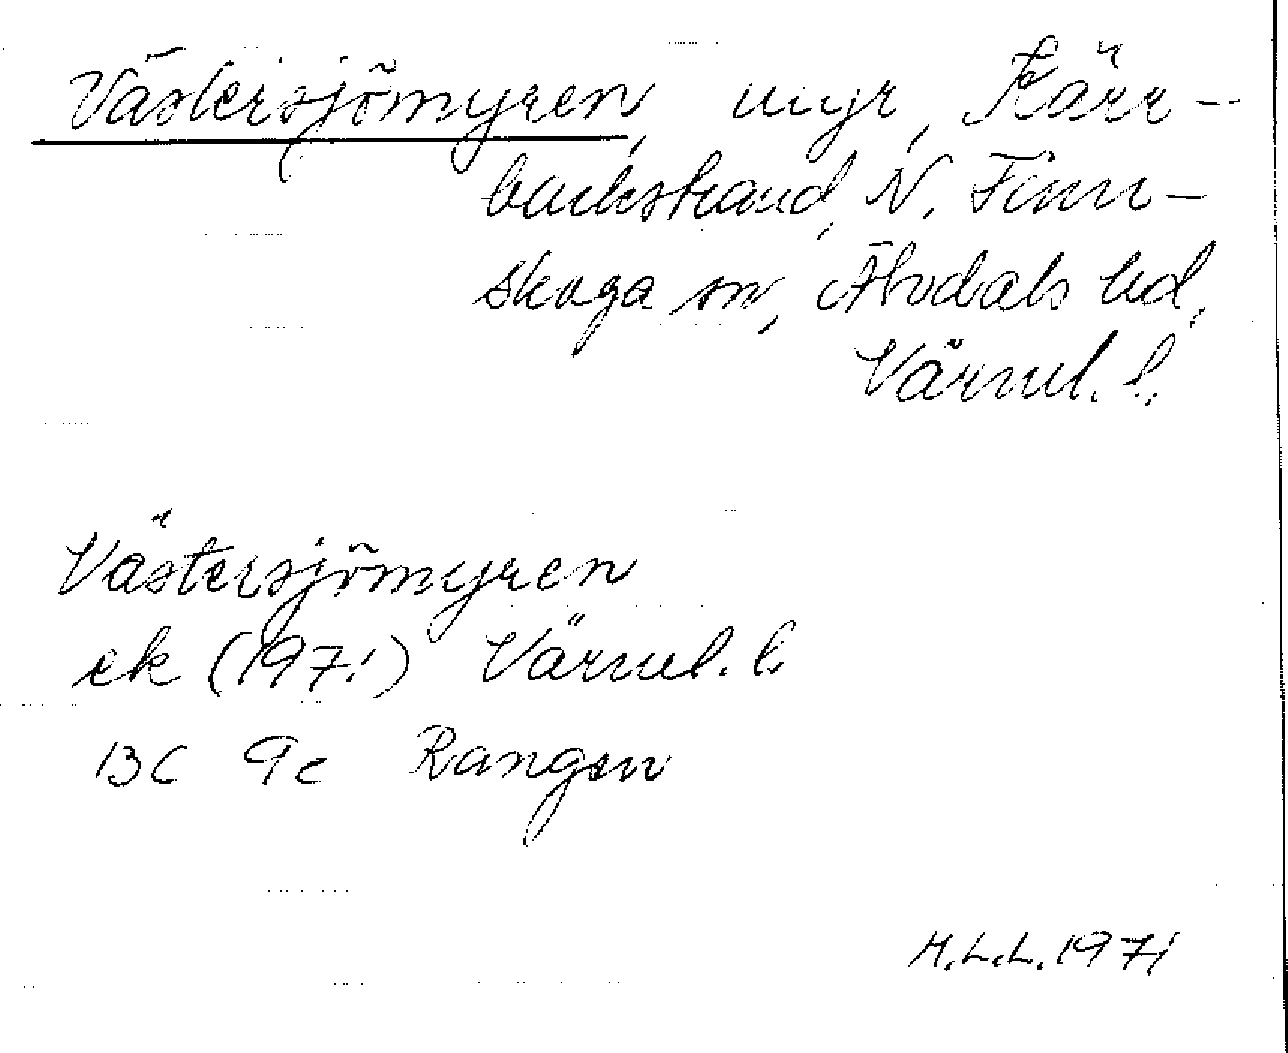 Västersjömyren, myr, Kärr-
backstrand, N. Finn-
skoga sn, Älvdals hd,
Värml. l.
Västersjömyren
ek (1971) Värml. l.
13C 9c Rangen
H.L.L. 1971